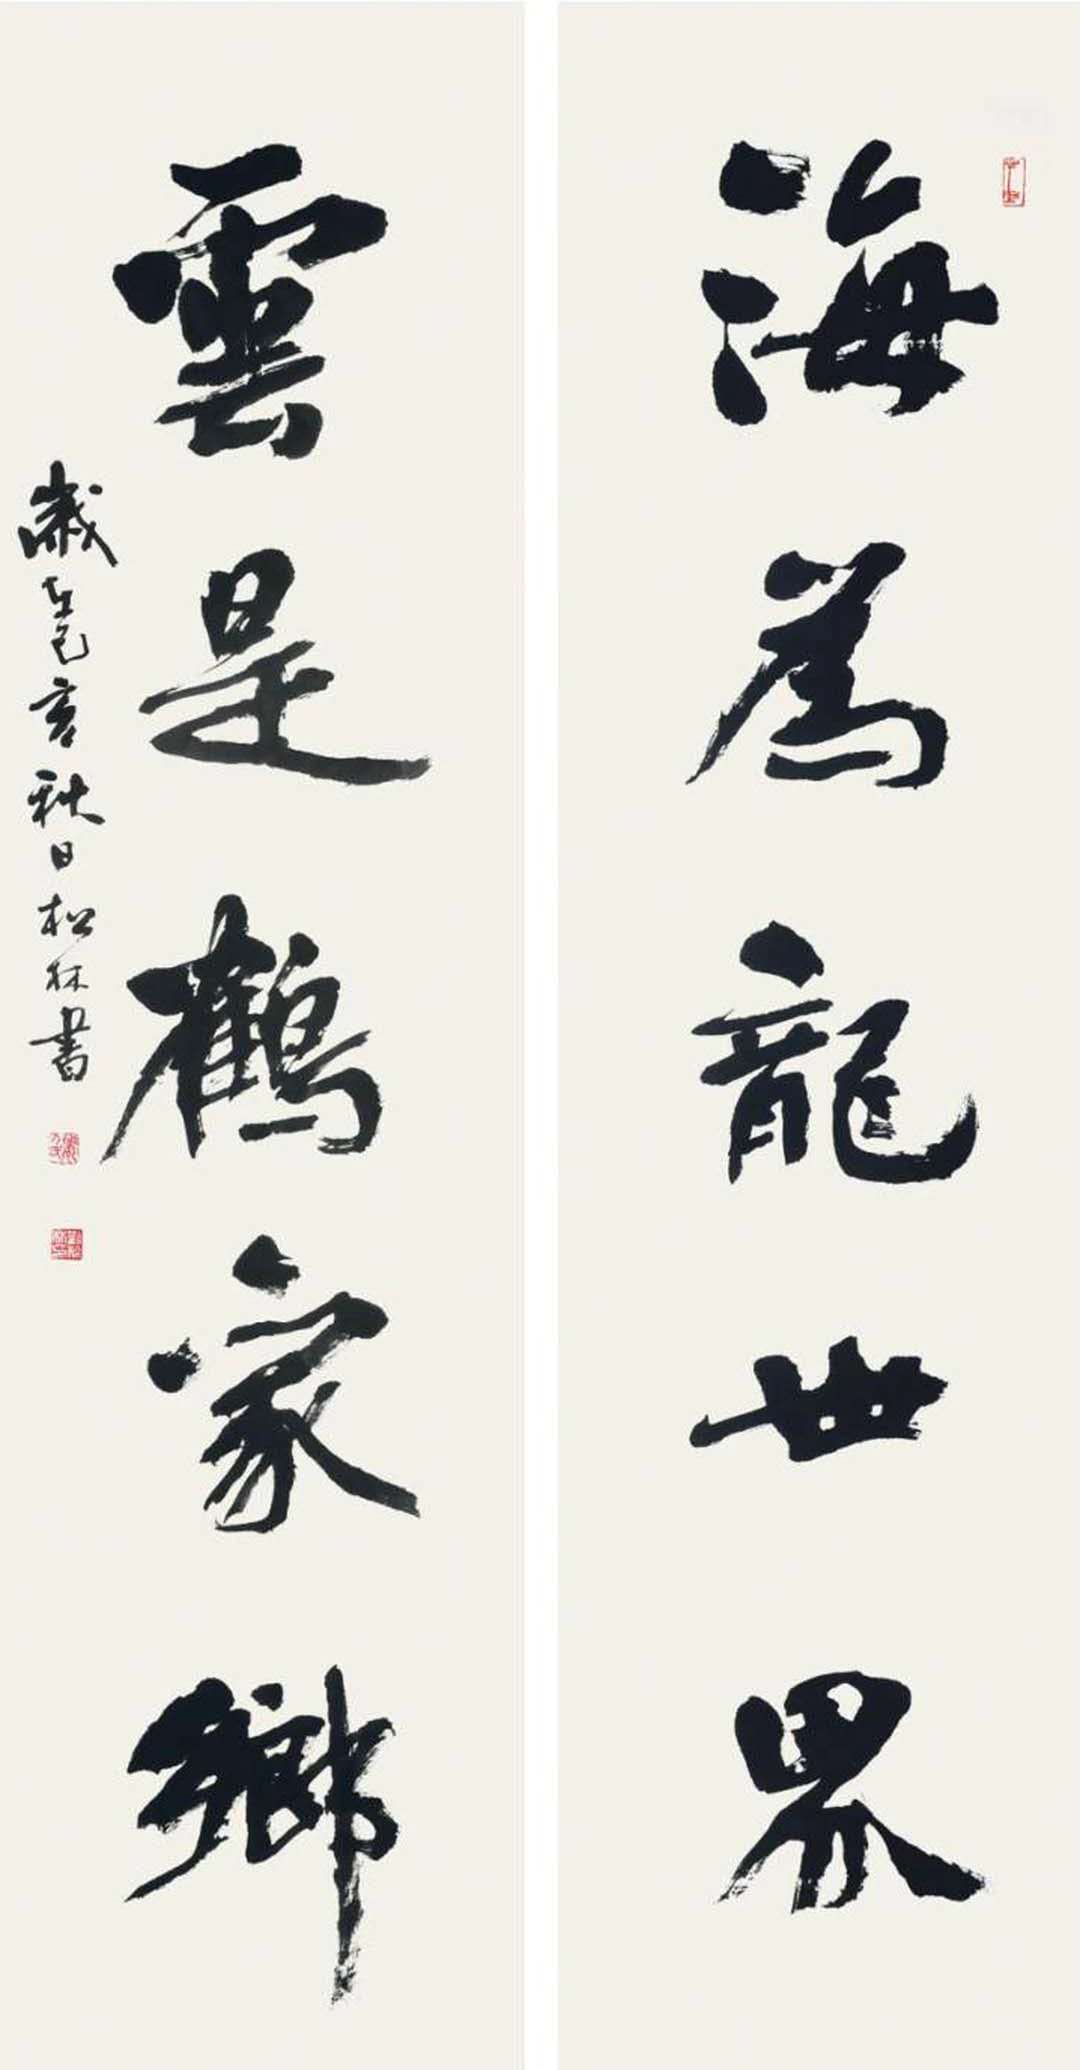 海為龍世界
雲是鶴家鄉
歲在己亥秋日松林書